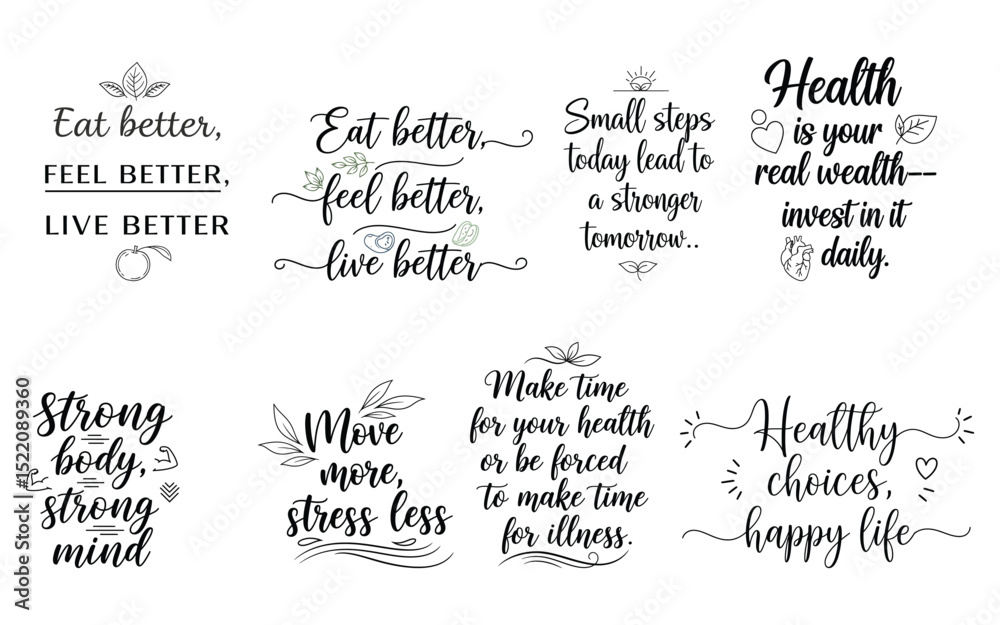 Eat better,
FEEL BETTER,
LIVE BETTER
Eat better,
feel better,
live better
Small steps
today lead to
a stronger
tomorrow..
Health
is your
real wealth--
invest in it
daily.
Strong
body,
strong
mind
Move
more,
stress less
Make time
for your health
or be forced
to make time
for illness.
Healthy
choices,
happy life
Adobe Stock | #1522089360